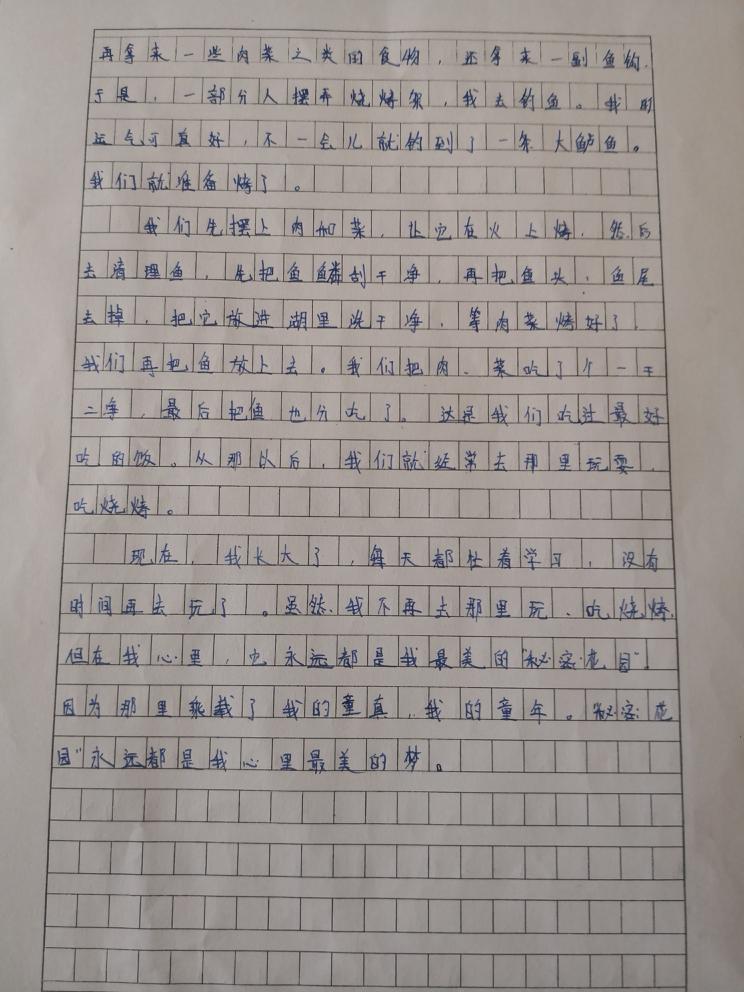 再拿来一些肉菜之类的食物，还拿来一副鱼钩，
于是，一部分人摆弄烧烤架，我去钓鱼。我的
运气可真好，不一会儿就钓到了一条大鲈鱼。
我们就准备烤了。
我们先摆上肉和菜，让它在火上烤，然后
去清理鱼，先把鱼鳞刮干净，再把鱼头，鱼尾
去掉，把它放进湖里洗干净，等肉菜烤好了，
我们再把鱼放上去。我们把肉、菜吃了个一干
二净，最后把鱼也分吃了。这是我们吃过最好
吃的饭。从那以后，我们就经常去那里玩耍，
吃烧烤。
现在，我长大了，每天都忙着学习，没有
时间再去玩了。虽然，我不再去那里玩、吃烧烤，
但在我心里，它永远都是我最美的“秘密花园”，
因为那里乘载了我的童真，我的童年。“秘密花
园”永远都是我心里最美的梦。